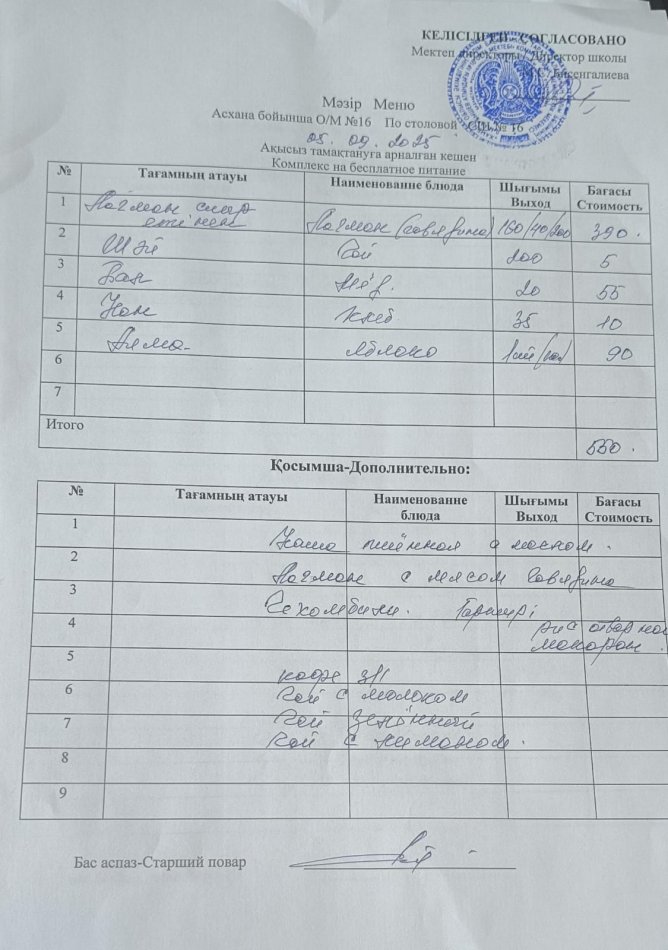 КЕЛІСІЛГЕН - СОГЛАСОВАНО
Мектеп директоры / Директор школы
Бисенгалиева
Мәзір Меню
Асхана бойынша О/М №16 По столовой СШ № 16
05. 09. 2025
Ақысыз тамақтануға арналған кешен
Комплекс на бесплатное питание
№ Тағамның атауы Наименование блюда Шығымы Выход Бағасы Стоимость
1 Лагман сиыр етімен Лагман (говядина) 160/40/200 390.
2 Шәй Чай 200 5
3 Вар 20 55
4 Нан Хлеб 35 10
5 Алма Яблоко 1 90
6
7
Итого 550.
Қосымша-Дополнительно:
№ Тағамның атауы Наименование блюда Шығымы Выход Бағасы Стоимость
1 Каша пшённая с маслом.
2 Лагман с мясом говядина
3 Гарнир:
4 рис отварной
макарон.
5 кофе 3/1
6 Чай с молоком
7 Чай зелённый
Чай с лимоном.
8
9
Бас аспаз-Старший повар